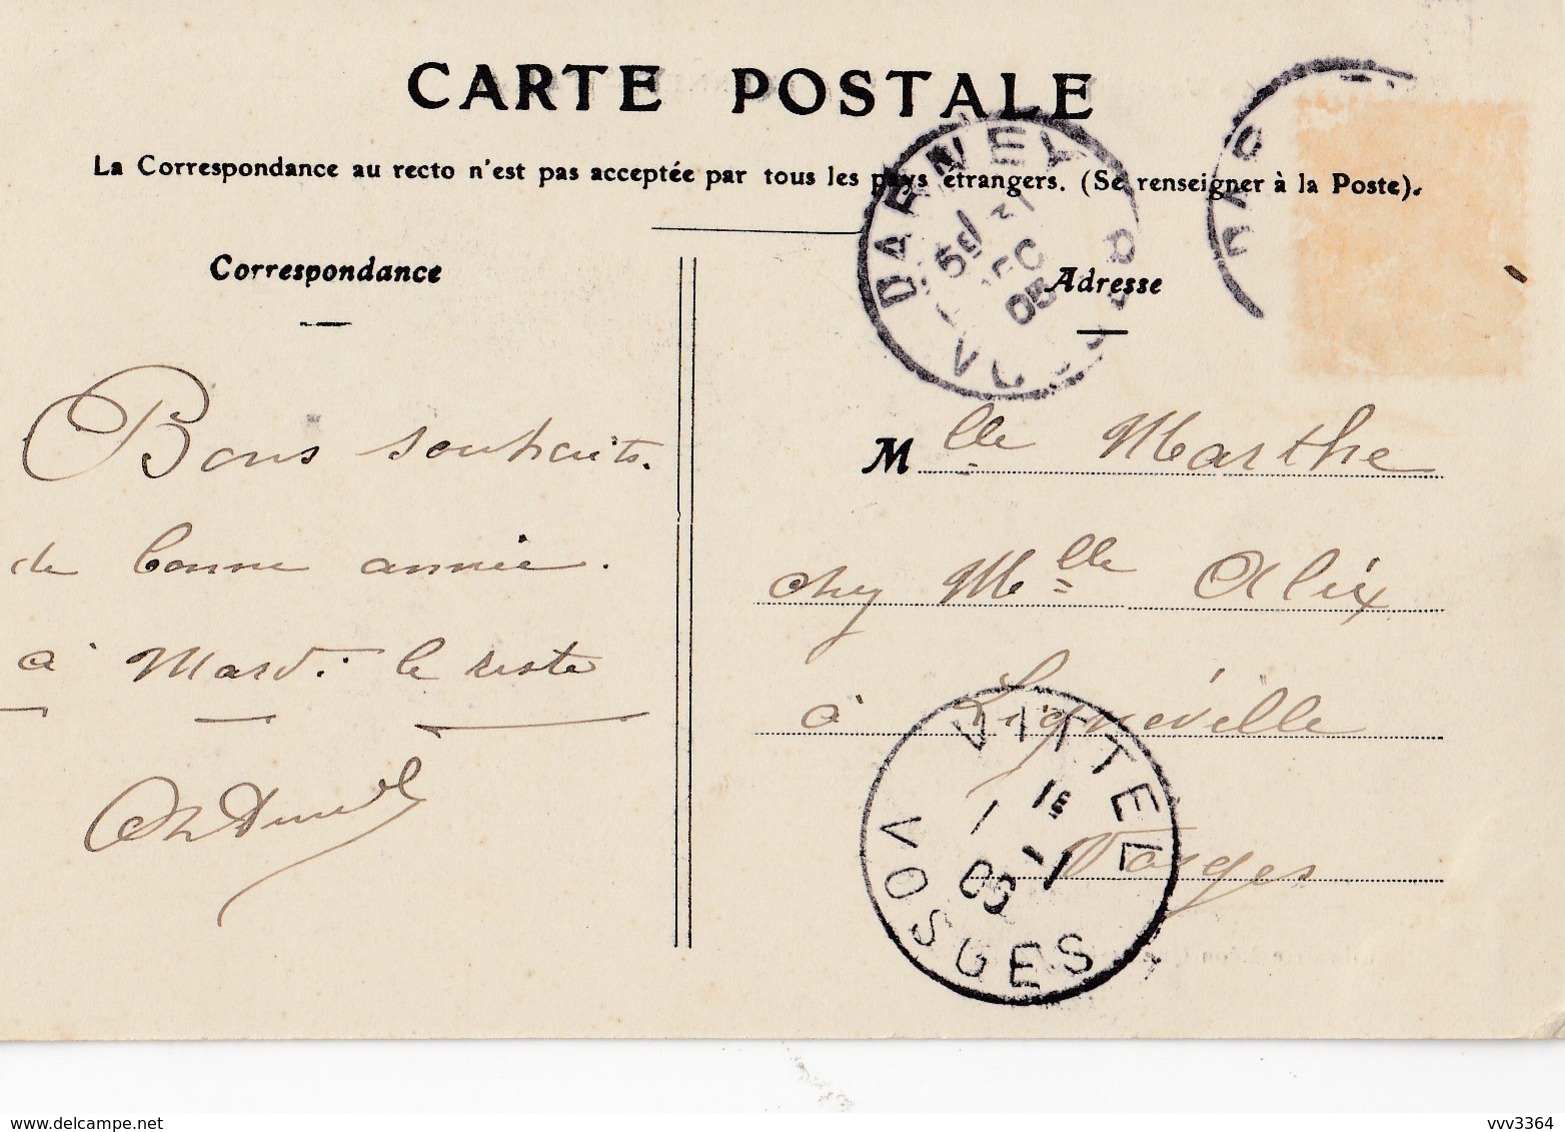 CARTE POSTALE
La Correspondance au recto n'est pas acceptée par tous les pays étrangers. (Se renseigner à la Poste).
Correspondance
Bons souhaits
de bonne année.
à Mardi le reste
Adresse
Mlle Marthe
chez Mlle Alix
à Lignéville
Vosges
DARNEY
5E 31
DEC
05
VOSGES
DAR
VITTEL
1E
1 -1
06
VOSGES
delcampe.net
vvv3364